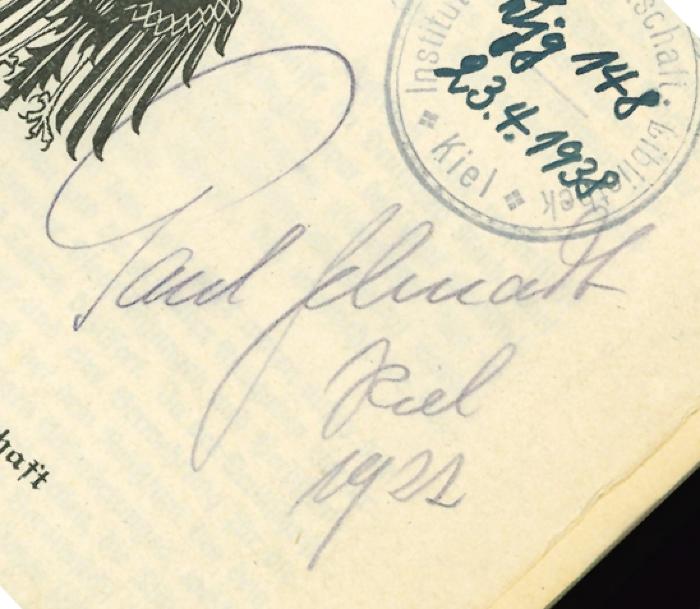 Institut
schaft. Bibliothek
Kiel
148
23.4.1938
Paul Schmadt
Kiel
1921
haft